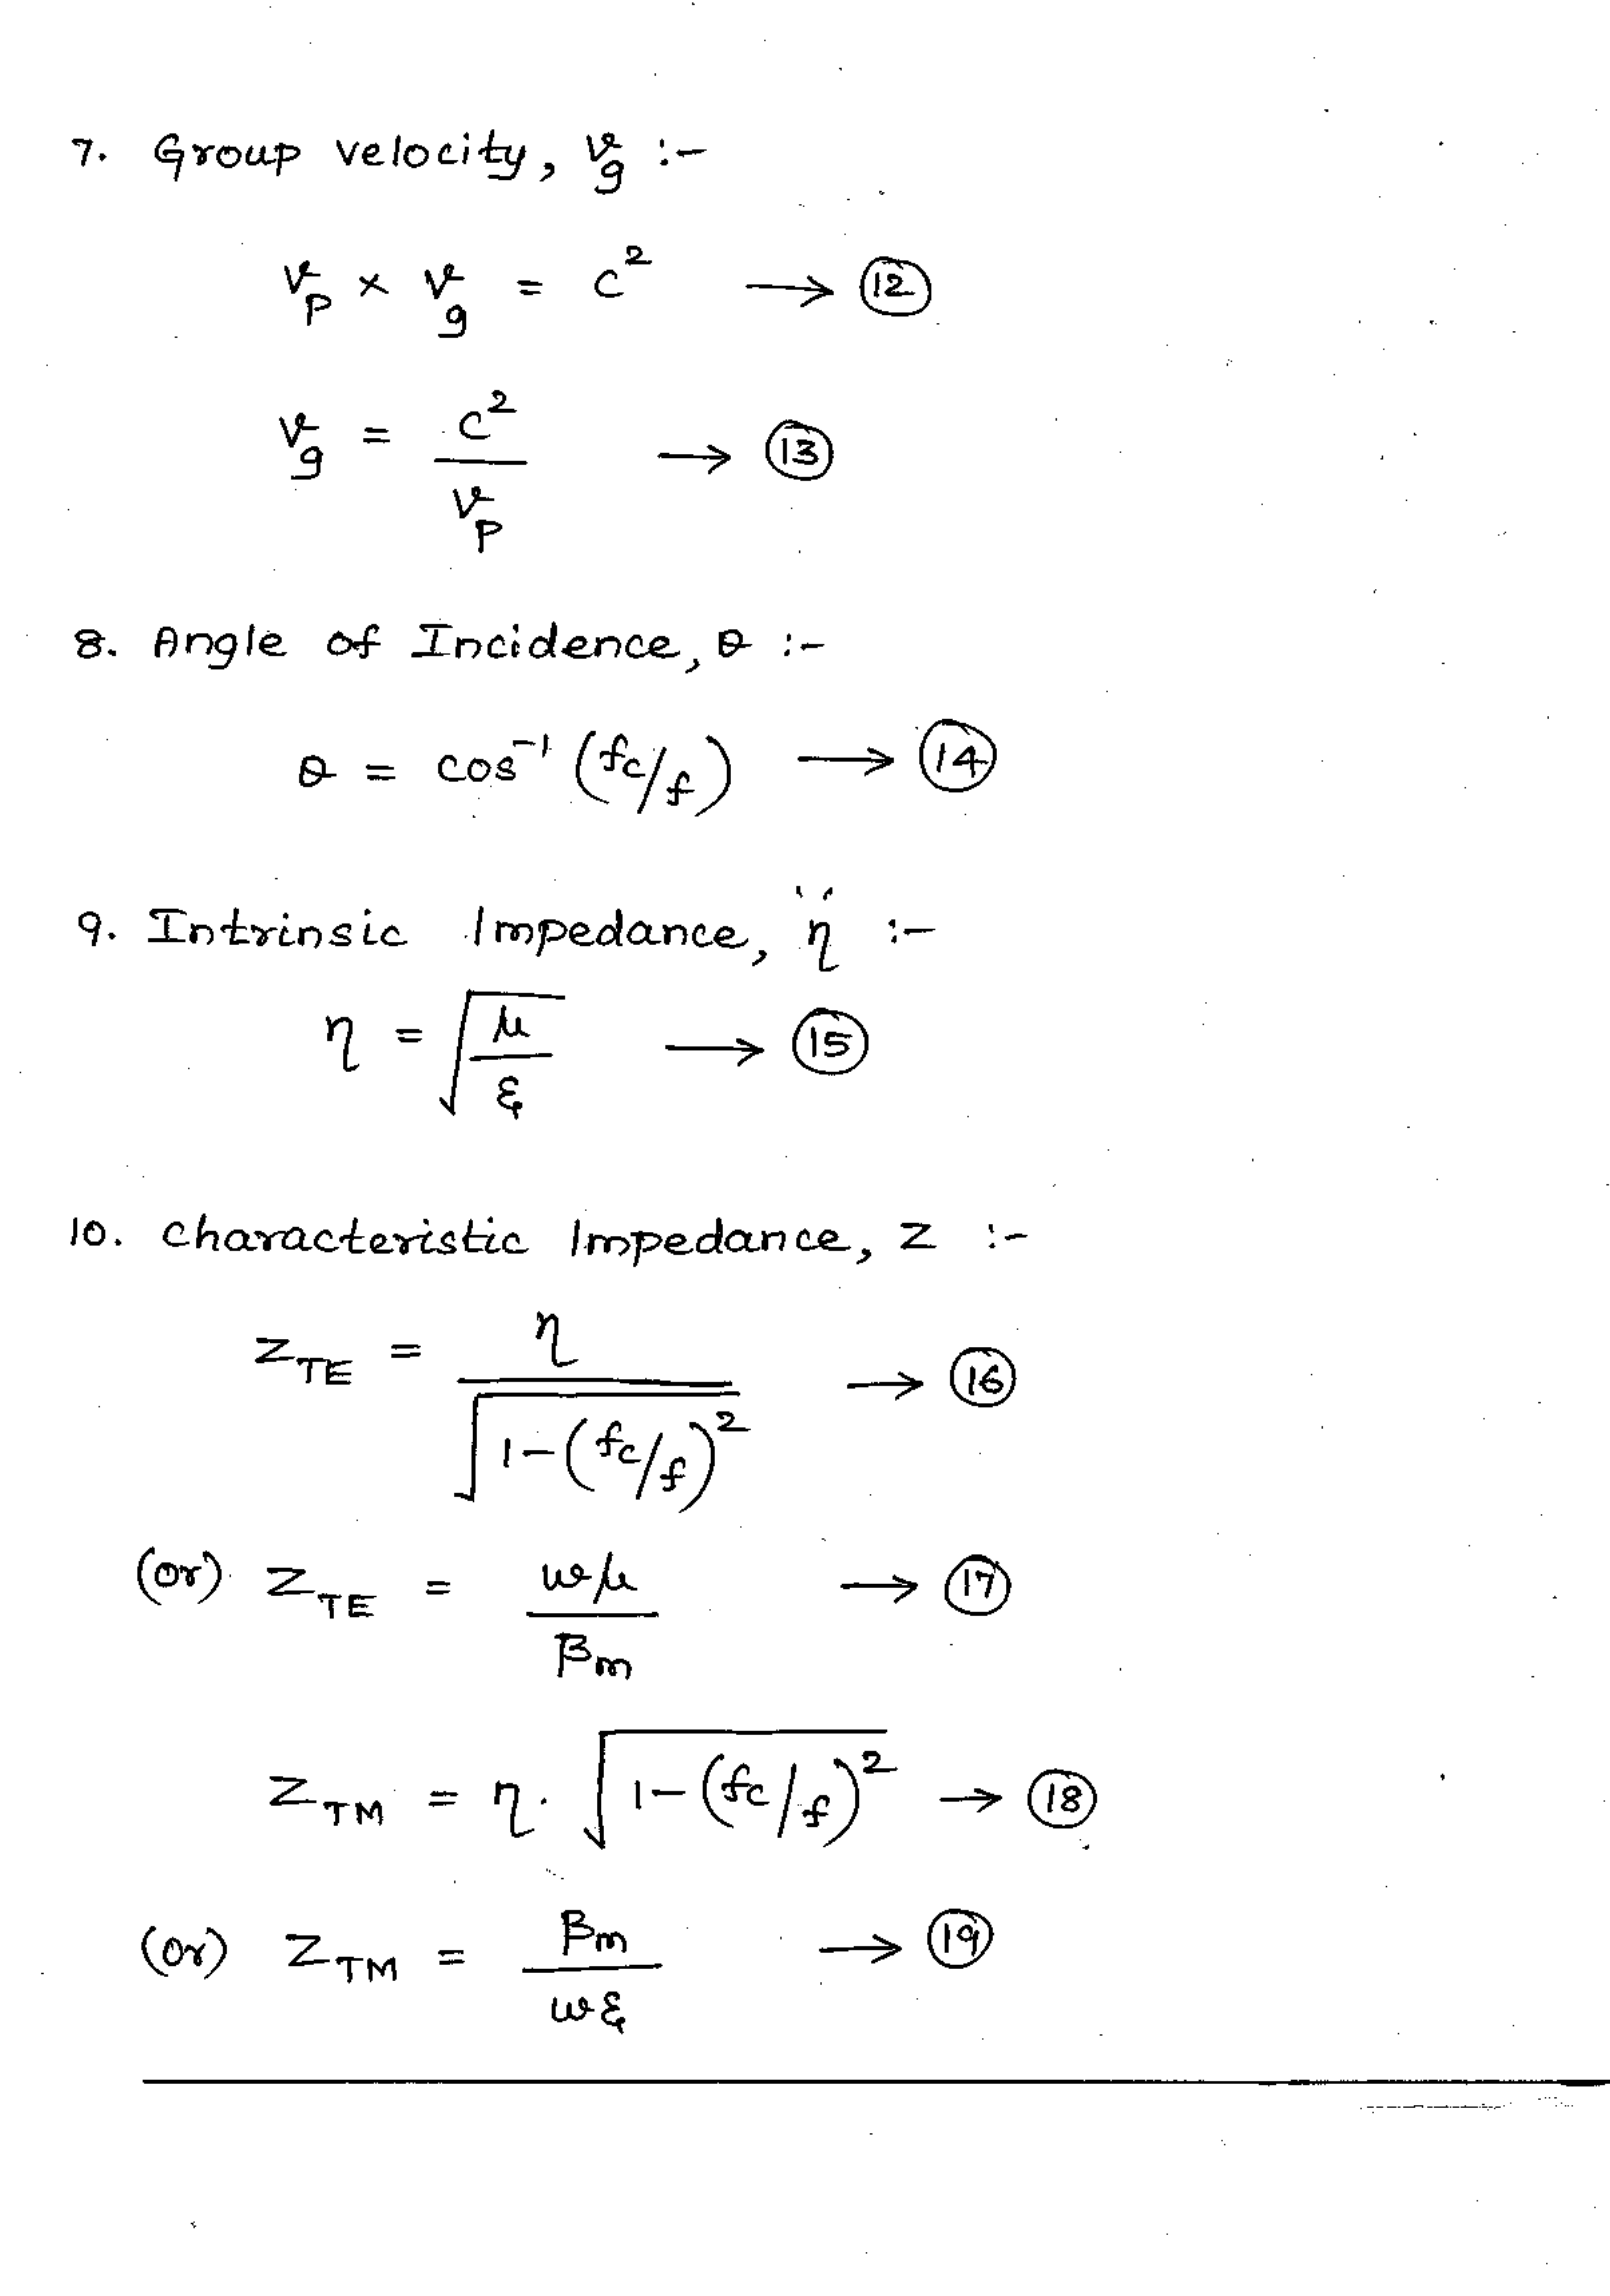 7. Group velocity, v_g :-
v_p × v_g = c² → (12)
v_g = c² / v_p → (13)
8. Angle of Incidence, θ :-
θ = cos⁻¹ (fc/f) → (14)
9. Intrinsic Impedance, "η" :-
η = √(μ/ε) → (15)
10. characteristic Impedance, Z :-
Z_TE = η / √(1-(fc/f)²) → (16)
(or) Z_TE = ωμ / β_m → (17)
Z_TM = η . √(1-(fc/f)²) → (18)
(or) Z_TM = β_m / ωε → (19)